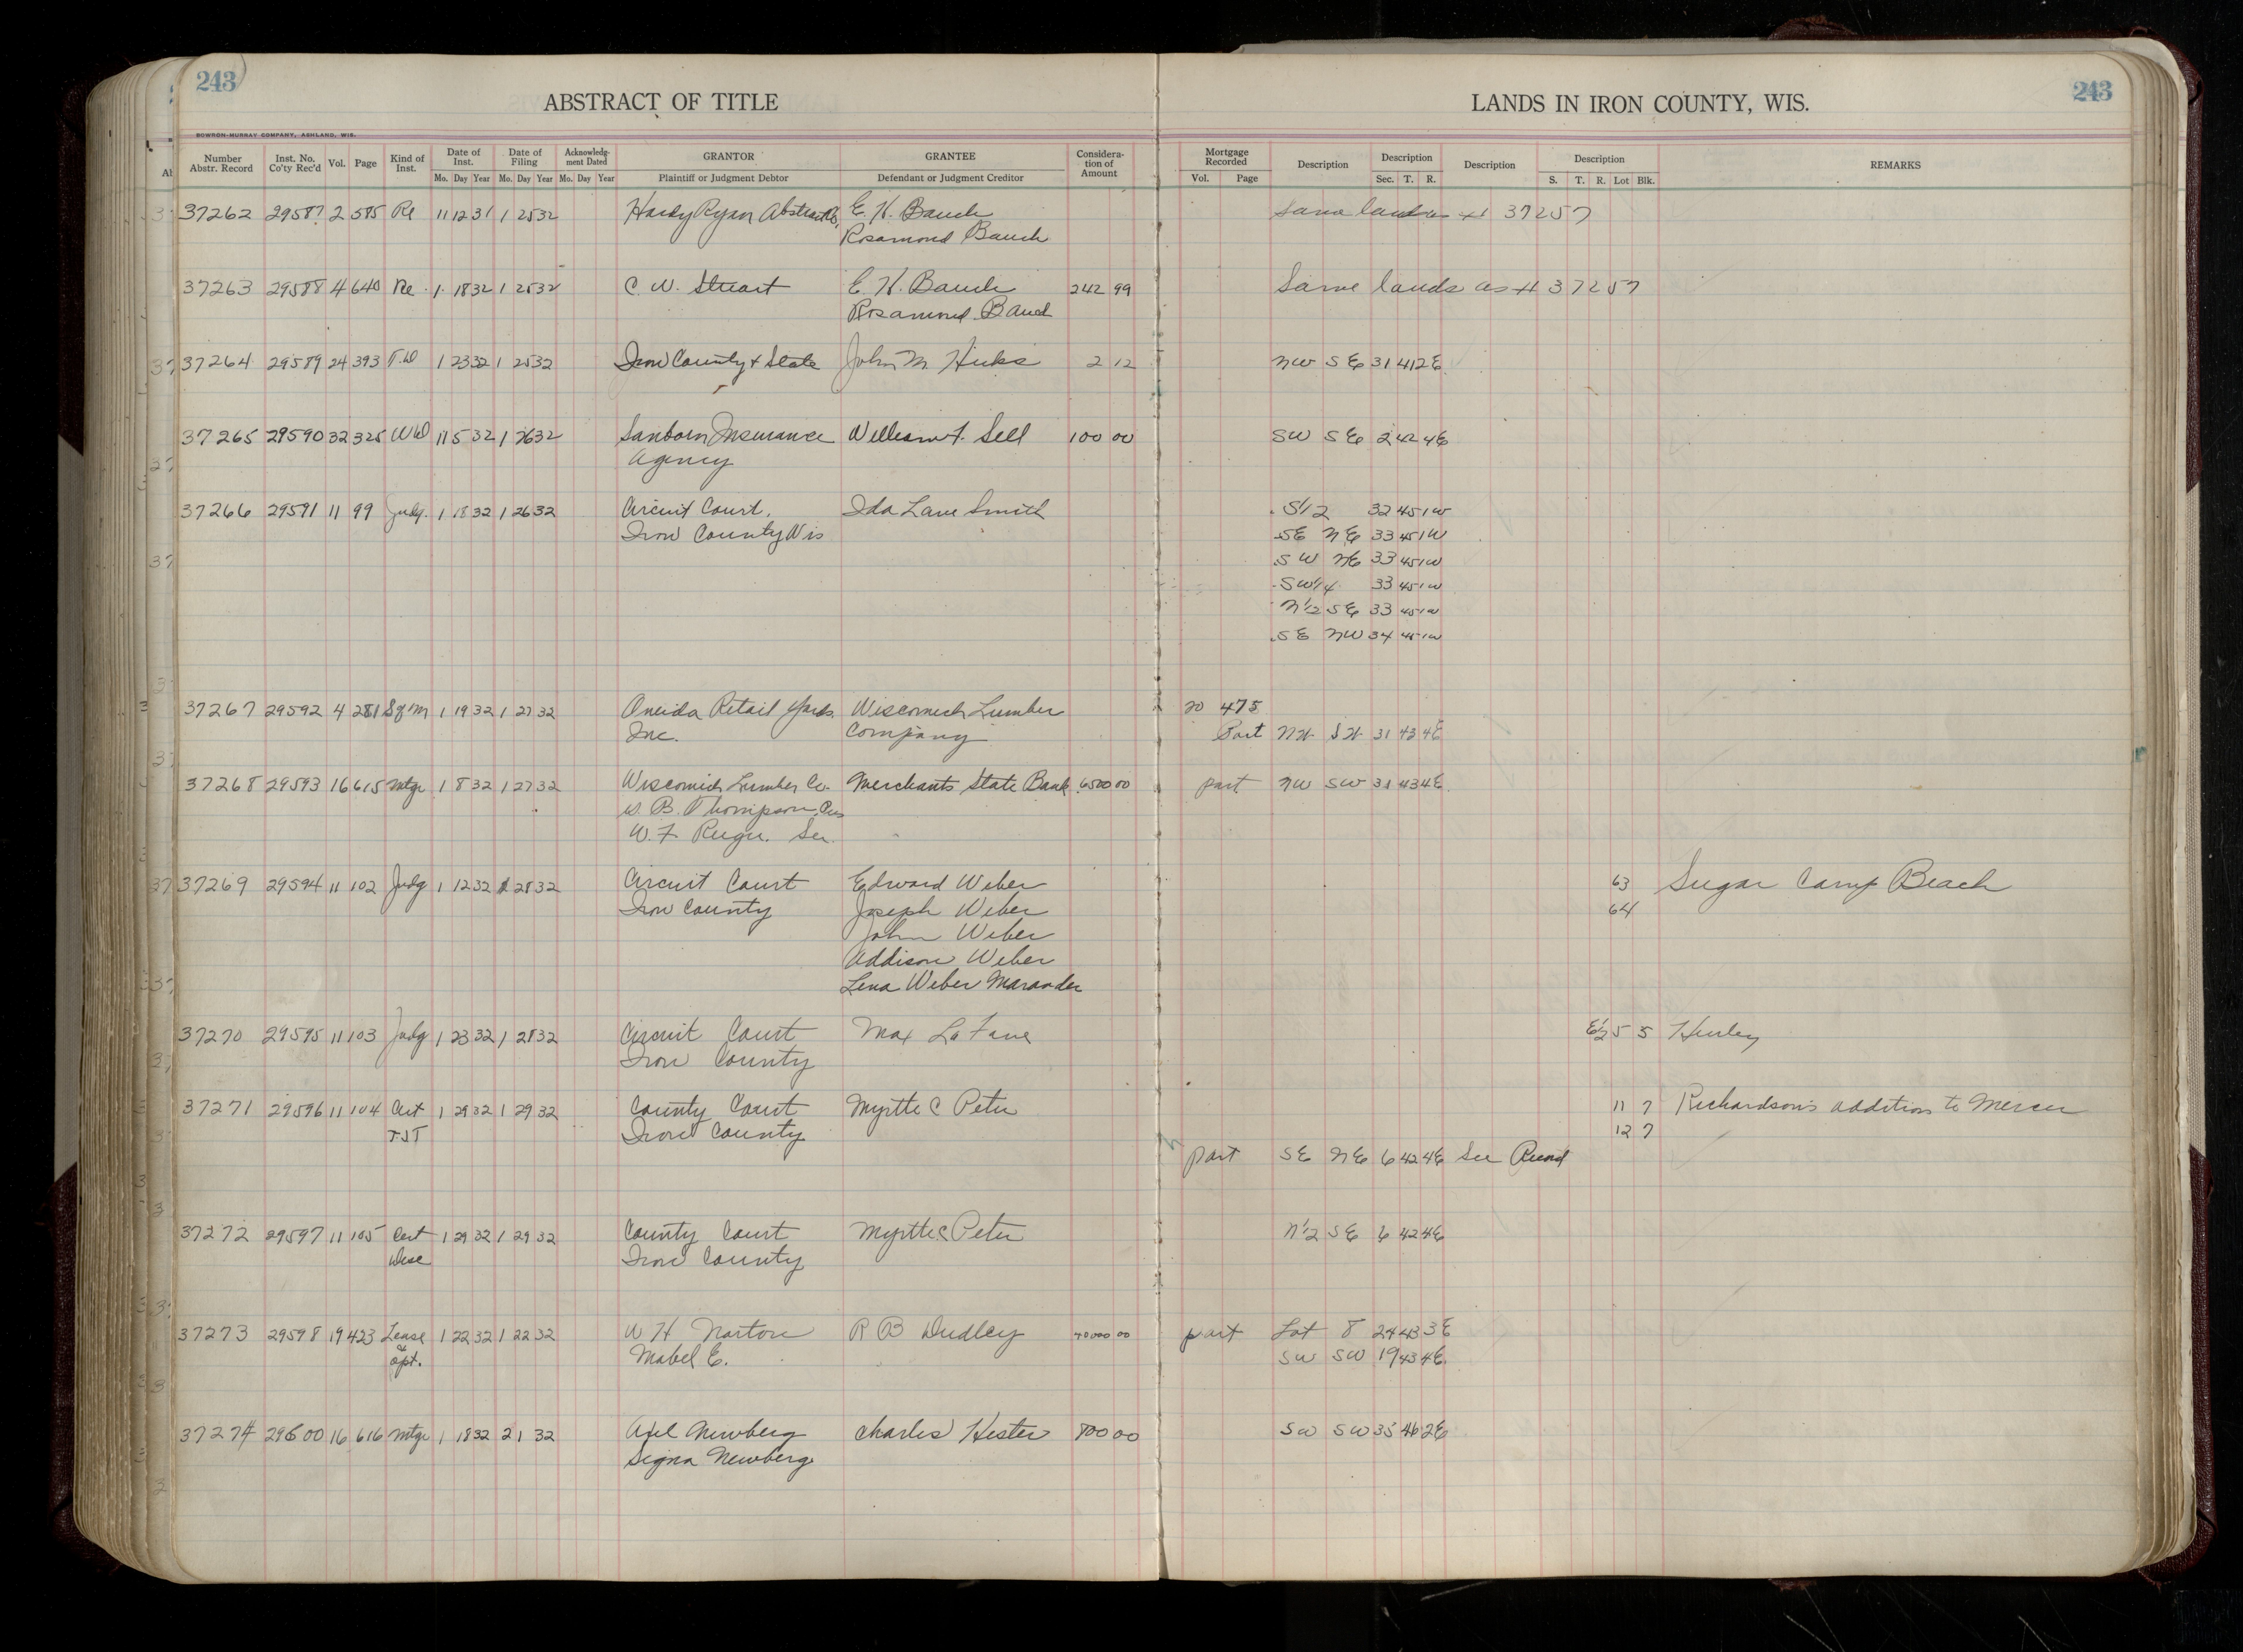 243
ABSTRACT OF TITLE
LANDS IN IRON COUNTY, WIS.
243
BOWRON-MURRAY COMPANY, ASHLAND, WIS.
Number Abstr. Record Inst. No. Co'ty Rec'd Vol. Page Kind of Inst. Date of Inst. Mo. Day Year Date of Filing Mo. Day Year Acknowledg-ment Dated Mo. Day Year GRANTOR Plaintiff or Judgment Debtor GRANTEE Defendant or Judgment Creditor Considera-tion of Amount Mortgage Recorded Vol. Page Description Description Sec. T. R. Description Description S. T. R. Lot Blk. REMARKS
37262 29587 2 585 Re 11 12 31 1 25 32 Hardy Ryan Abstract Co. E. H. Bauch Same lands as # 37257
Rosamond Bauch
37263 29588 4 640 Re 1 18 32 1 25 32 C. W. Stuart E. H. Bauch 242 99 Same lands as # 37257
Rosamond Bauch
37264 29589 24 393 T.D 1 23 32 1 25 32 Iron County & State John M Hicks 2 12 NW SE 31 41 2E
37265 29590 32 325 WD 11 5 32 1 26 32 Sanborn Insurance William F. Sell 100 00 SW SE 2 42 4E
Agency
37266 29591 11 99 Judg. 1 18 32 1 26 32 Circuit Court. Ida Lane Smith S1/2 32 45 1W
Iron County Wis SE NE 33 45 1W
SW NE 33 45 1W
SW1/4 33 45 1W
N1/2 SE 33 45 1W
SE NW 34 45 1W
37267 29592 4 281 Sq'm 1 19 32 1 27 32 Oneida Retail Yards. Wisconmich Lumber 20 475
Inc. Company Part NW SW 31 43 4E
37268 29593 16 615 Mtge 1 8 32 1 27 32 Wisconmich Lumber Co. Merchants State Bank 6500 00 part NW SW 31 43 4E
B. Thompson, Pres
W. F. Sec.
37269 29594 11 102 Judg 1 12 32 1 28 32 Circuit Court Edward Weber 63 Sugar Camp Beach
Iron County Joseph Weber 64
John Weber
Addison Weber
Lena Weber Marander
37270 29595 11 103 Judg 1 23 32 1 28 32 Circuit Court Max La Fave E1/2 5 5 Hurley
Iron County
37271 29596 11 104 Cert 1 29 32 1 29 32 County Court Myrtte C Peter 11 7 Richardson's addition to Mercer
T.J.T Iron County 12 7
part SE NE 6 42 4E See Record
37272 29597 11 105 Cert 1 29 32 1 29 32 County Court Myrtte C Peter N1/2 SE 6 42 4E
Desc Iron County
37273 29598 19 423 Lease 1 22 32 1 22 32 W H Norton R B Dudley 40000 00 part Lot 8 24 43 3E
& opt. Mabel E. SW SW 19 43 4E
37274 29600 16 616 Mtge 1 18 32 2 1 32 Axel Newberg Charles Hester 800 00 SW SW 35 46 2E
Signa Newberg